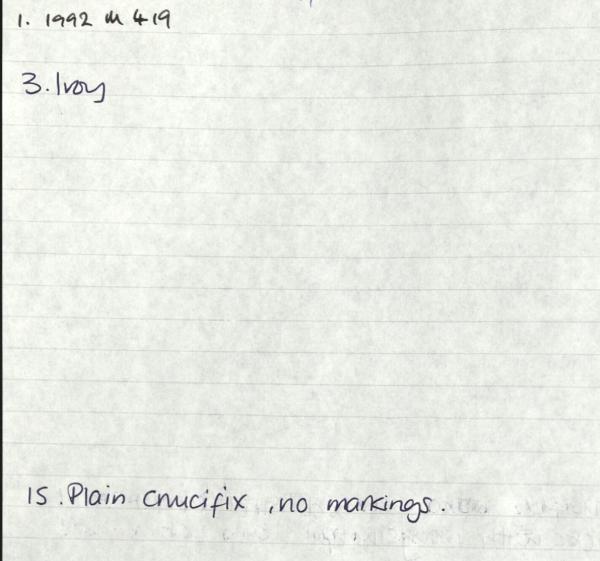 1. 1992 M 419
3. Ivory
15. Plain crucifix, no markings.